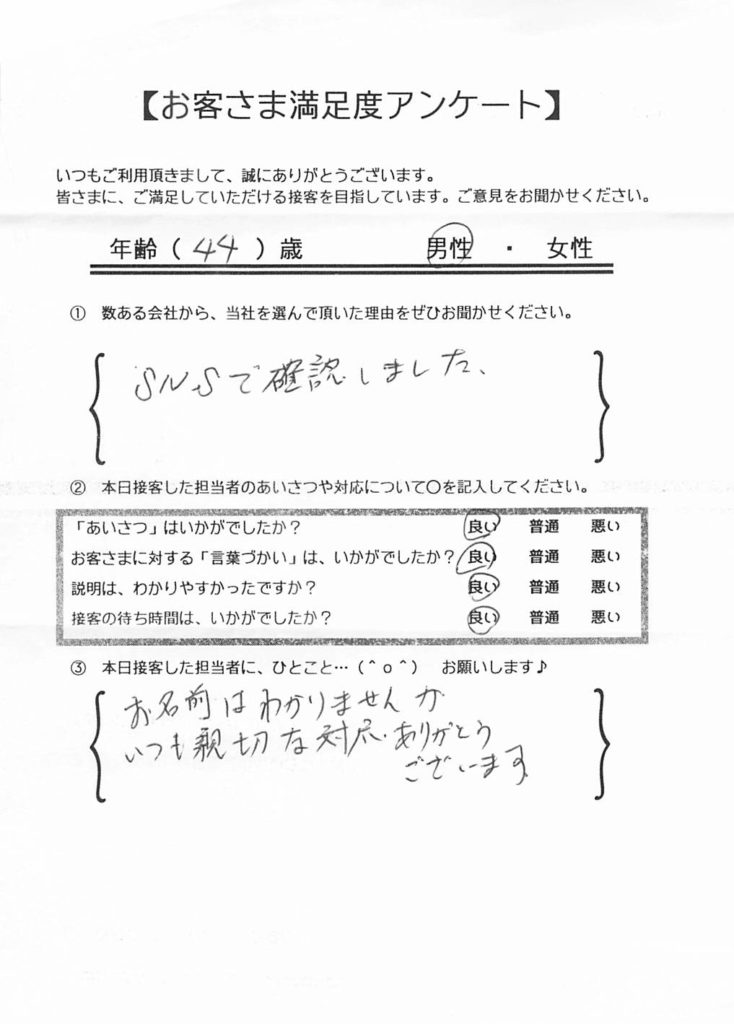 【お客さま満足度アンケート】
いつもご利用頂きまして、誠にありがとうございます。
皆さまに、ご満足していただける接客を目指しています。ご意見をお聞かせください。
年齢（ 44 ）歳　男性 ・ 女性
① 数ある会社から、当社を選んで頂いた理由をぜひお聞かせください。
SNSで確認しました、
② 本日接客した担当者のあいさつや対応について〇を記入してください。
「あいさつ」はいかがでしたか？ 良い 普通 悪い
お客さまに対する「言葉づかい」は、いかがでしたか？ 良い 普通 悪い
説明は、わかりやすかったですか？ 良い 普通 悪い
接客の待ち時間は、いかがでしたか？ 良い 普通 悪い
③ 本日接客した担当者に、ひとこと…（＾ｏ＾） お願いします♪
お名前はわかりませんが
いつも親切な対応・ありがとう
ございます